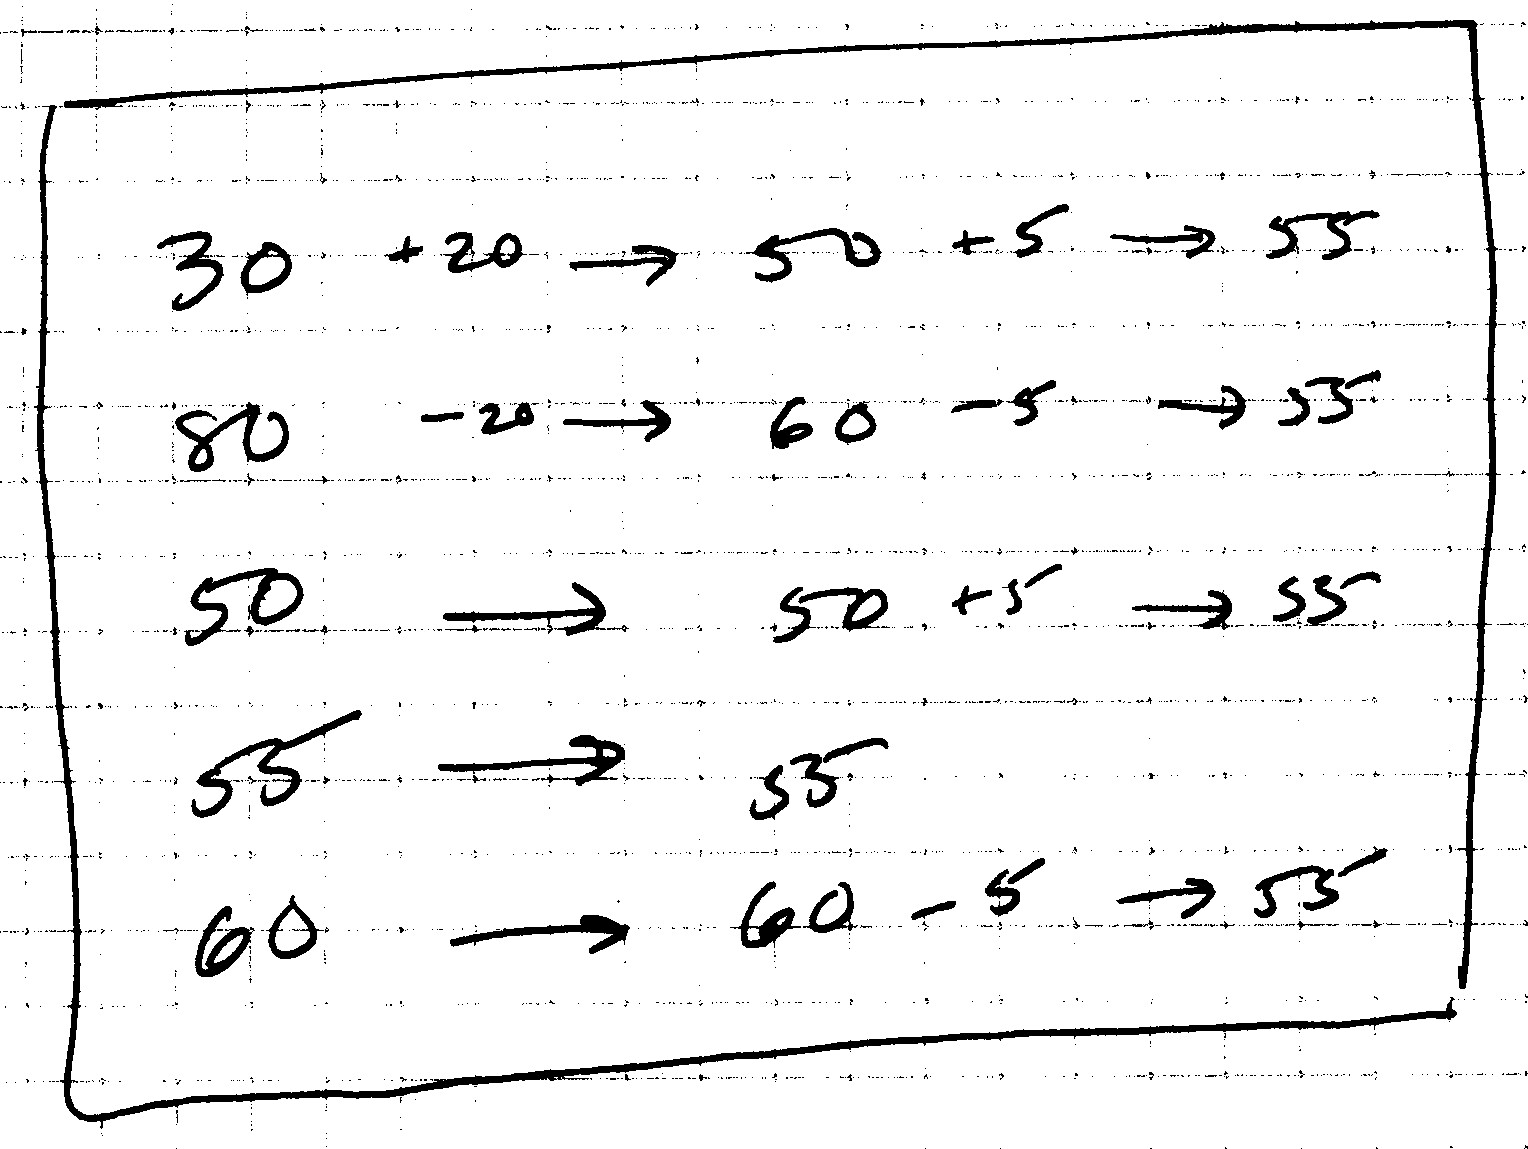 30 +20 → 50 +5 → 55
80 -20 → 60 -5 → 55
50 → 50 +5 → 55
55 → 55
60 → 60 -5 → 55